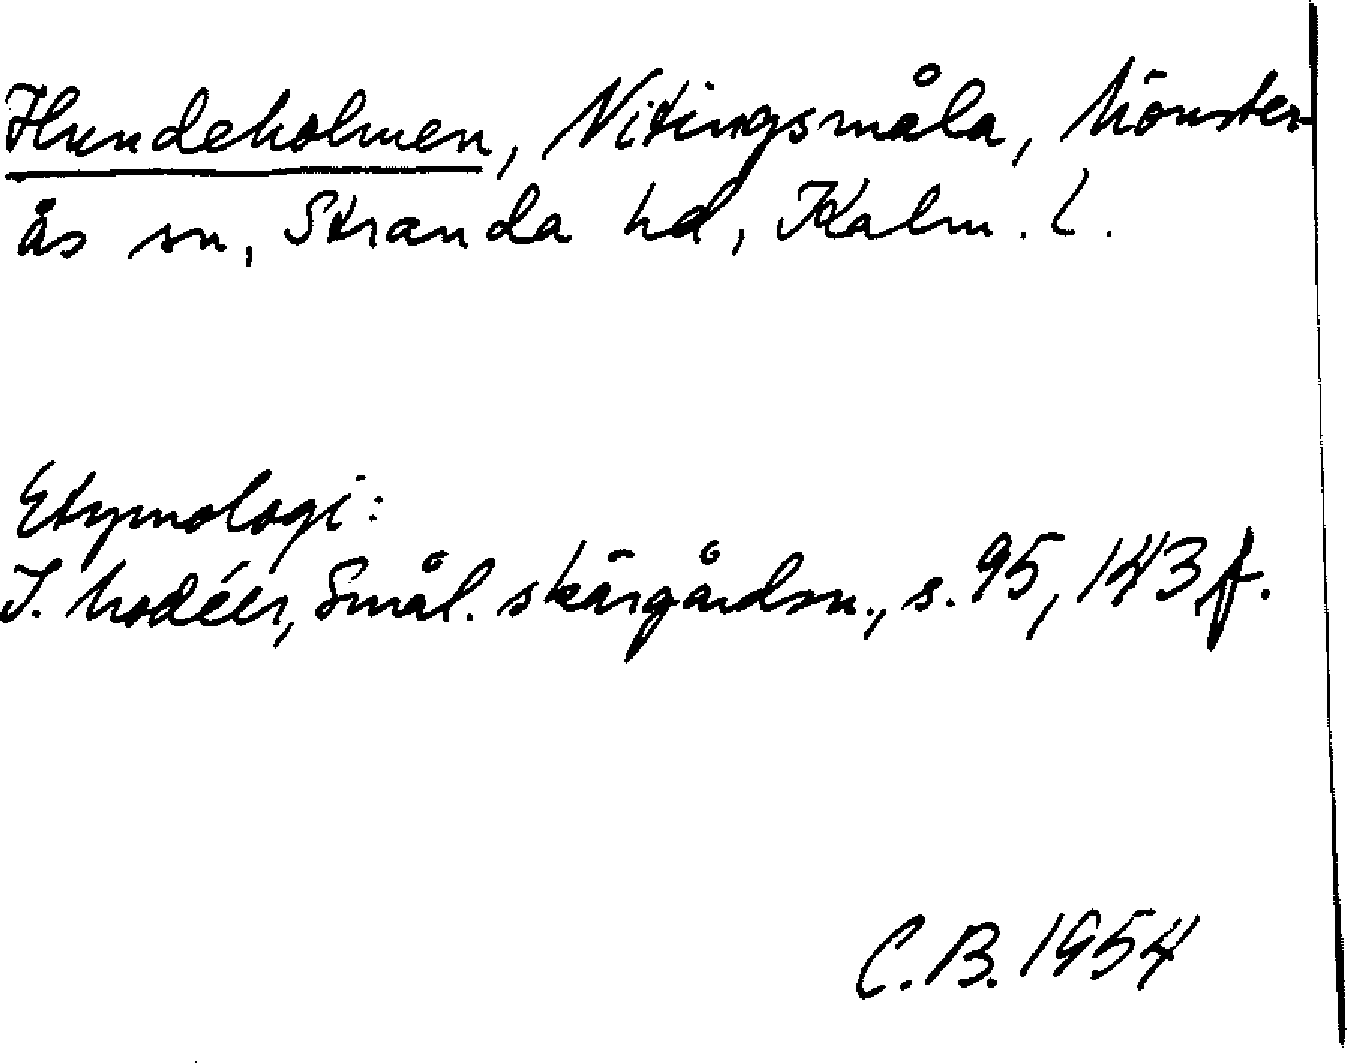 Hundeholmen, Nitingsmåla, Mönster-
ås sn, Stranda hd, Kalm. l.
Etymologi:
I. Modéer, Smål. skärgårdsn., s. 95, 143 f.
C.B. 1954